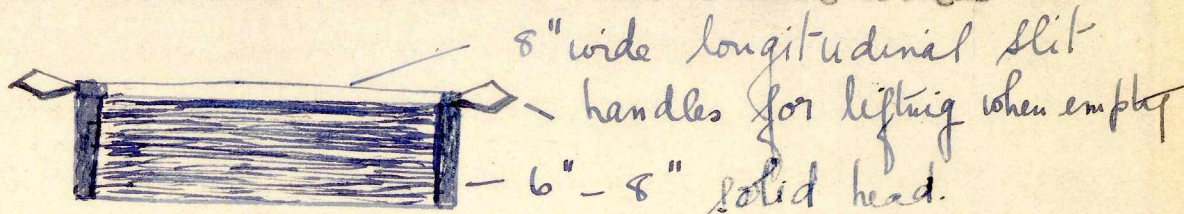 8" wide longitudinal slit
handles for lifting when empty
6" - 8" solid head.